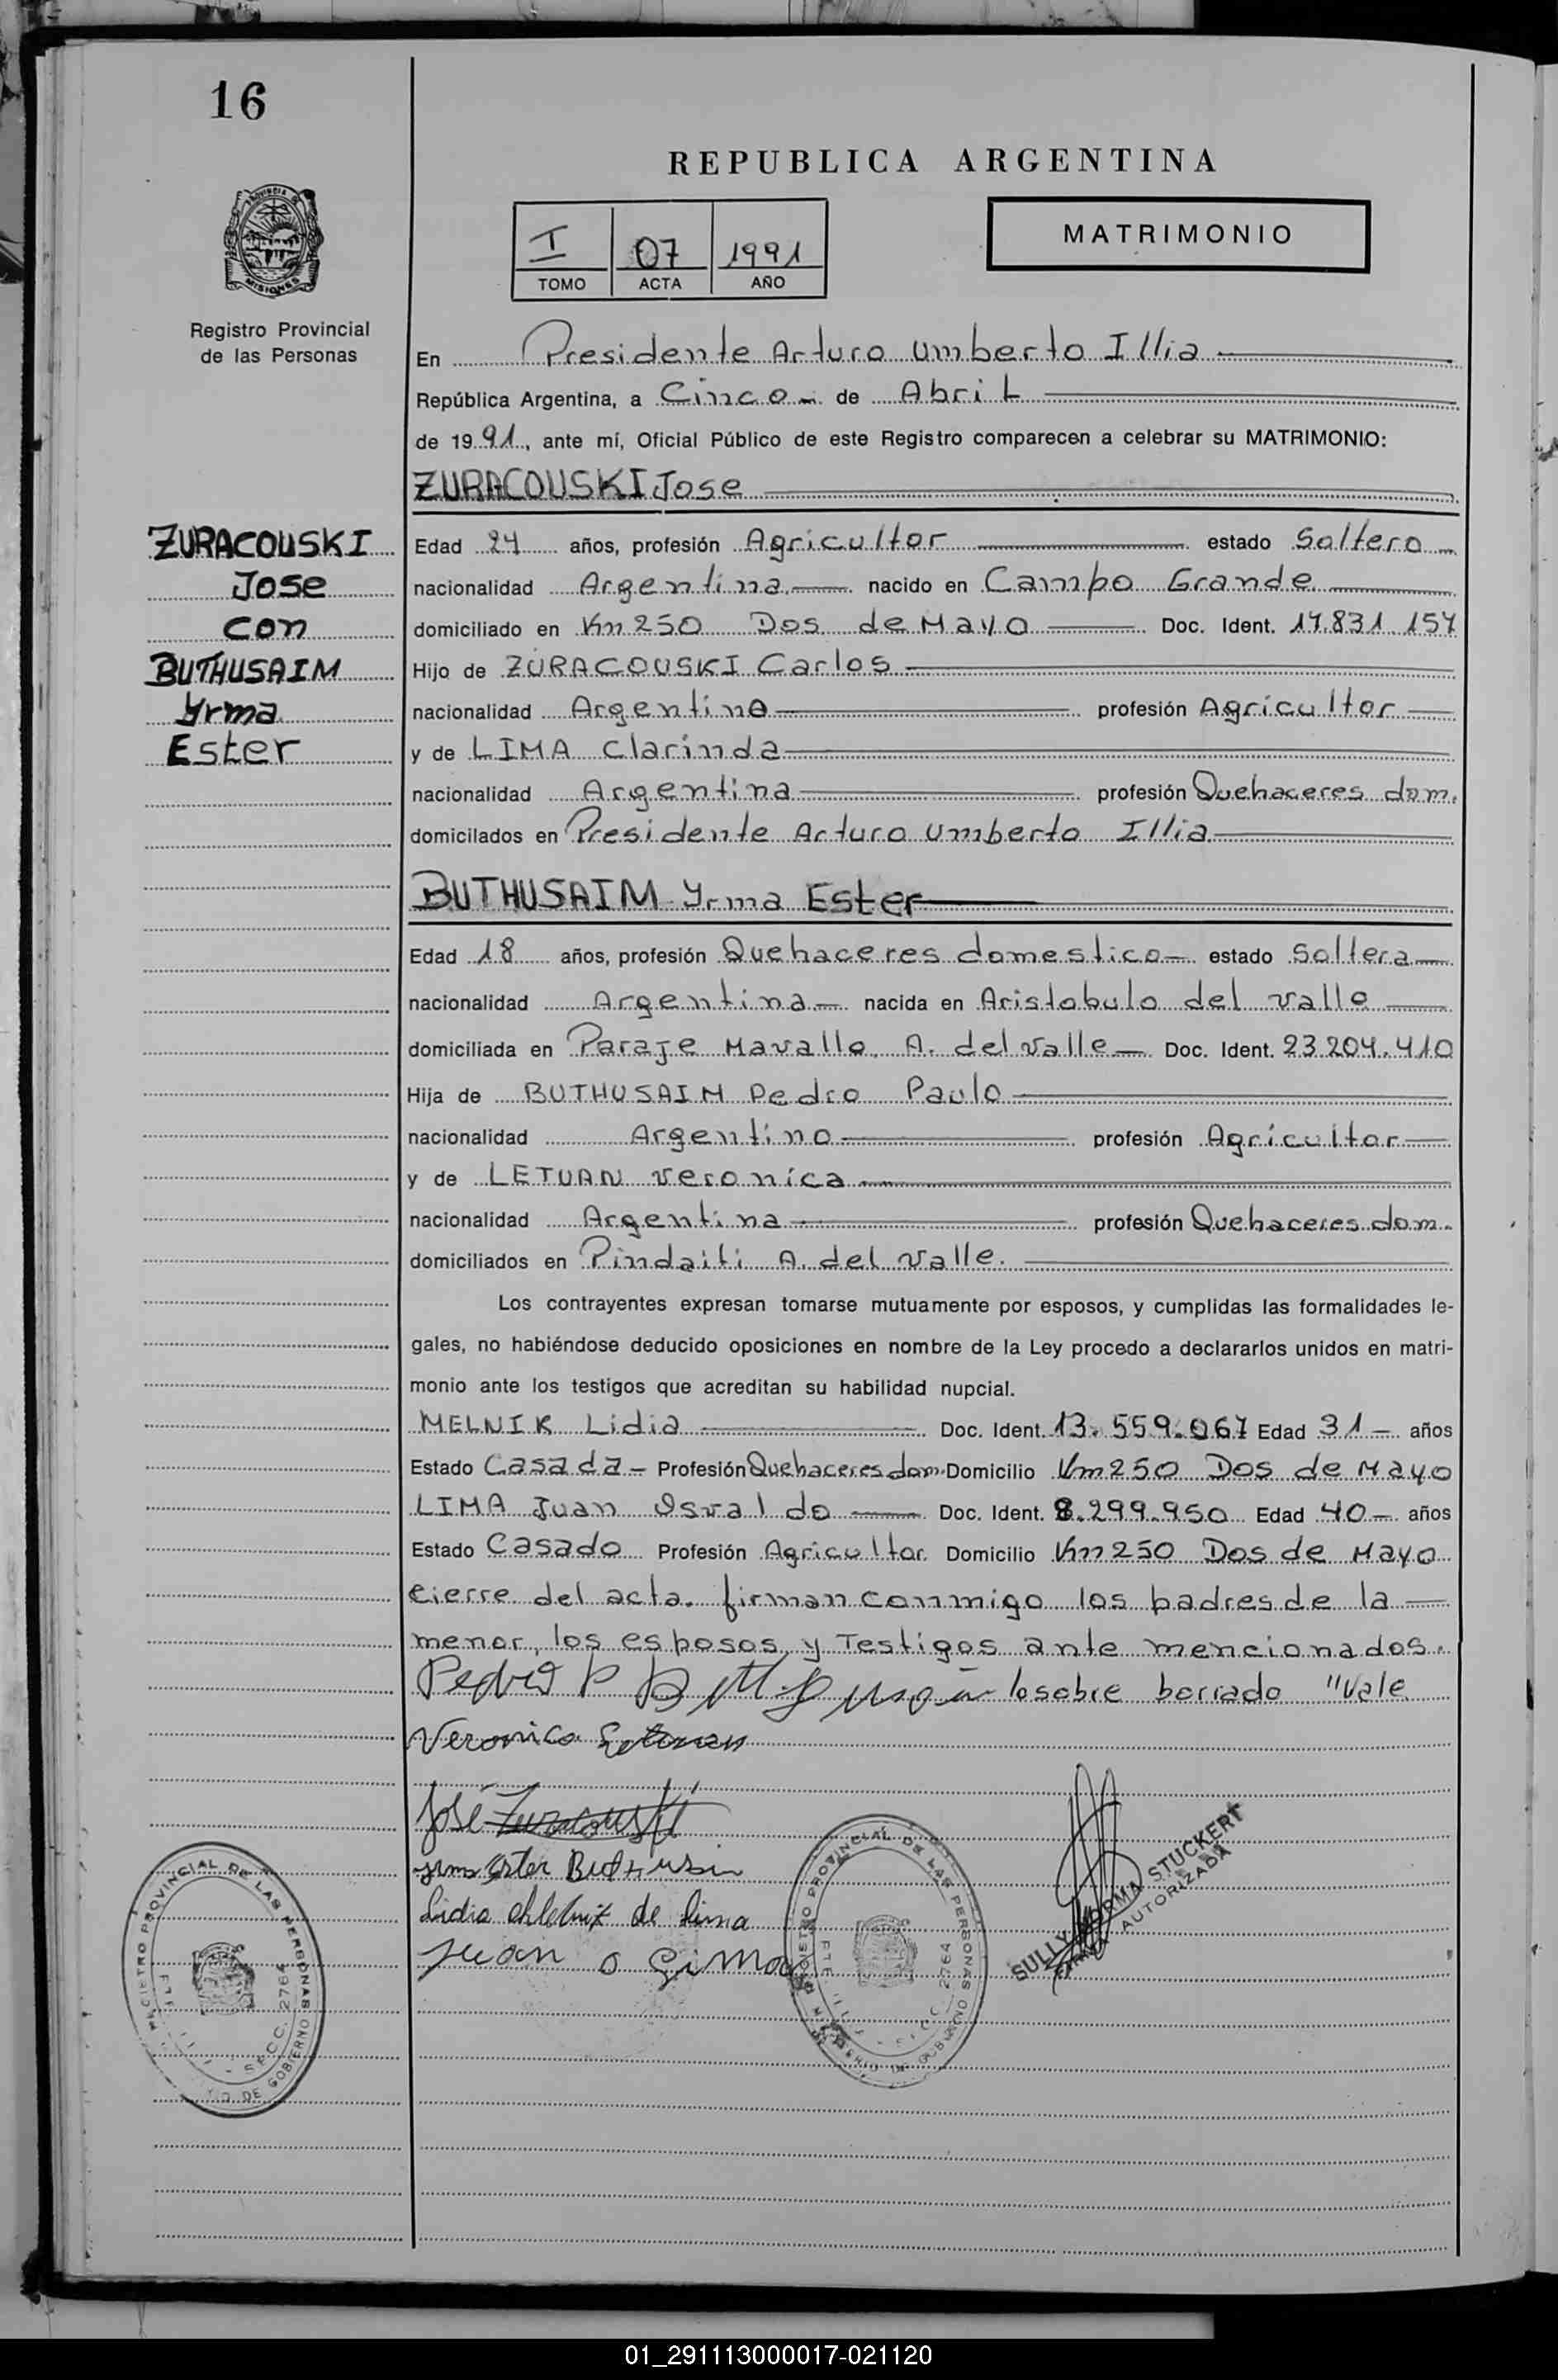 16
REPUBLICA ARGENTINA
MATRIMONIO
I 07 1991
TOMO ACTA AÑO
MISIONES
Registro Provincial
de las Personas
En Presidente Arturo Umberto Illia
República Argentina, a Cinco de Abril
de 1991, ante mí, Oficial Público de este Registro comparecen a celebrar su MATRIMONIO:
ZURACOUSKI Jose
ZURACOUSKI
Jose
con
BUTHUSAIM
Yrma
Ester
Edad 24 años, profesión Agricultor estado Soltero
nacionalidad Argentina nacido en Campo Grande
domiciliado en Km 250 Dos de Mayo Doc. Ident. 17.831.157
Hijo de ZURACOUSKI Carlos
nacionalidad Argentino profesión Agricultor
y de LIMA Clarinda
nacionalidad Argentina profesión Quehaceres dom.
domicilados en Presidente Arturo Umberto Illia
BUTHUSAIM Yrma Ester
Edad 18 años, profesión Quehaceres domestico estado Soltera
nacionalidad Argentina nacida en Aristobulo del valle
domiciliada en Paraje Mavallo, A. del valle Doc. Ident. 23.204.410
Hija de BUTHUSAIM Pedro Paulo
nacionalidad Argentino profesión Agricultor
y de LETUAN veronica
nacionalidad Argentina profesión Quehaceres dom.
domiciliados en Pindaiti A. del valle.
Los contrayentes expresan tomarse mutuamente por esposos, y cumplidas las formalidades le-
gales, no habiéndose deducido oposiciones en nombre de la Ley procedo a declararlos unidos en matri-
monio ante los testigos que acreditan su habilidad nupcial.
MELNIK Lidia Doc. Ident. 13.559.067 Edad 31 años
Estado Casada Profesión Quehaceres dom. Domicilio Km 250 Dos de Mayo
LIMA Juan Osvaldo Doc. Ident. 8.299.950 Edad 40 años
Estado Casado Profesión Agricultor Domicilio Km 250 Dos de Mayo
cierre del acta. firman conmigo los padres de la
menor, los esposos y Testigos ante mencionados.
Pedro P lo sobre borrado "Vale
Veronica Letuan
José Zuracouski
Ester
Lidia de Lima
Juan O Lima
SULLY NORMA STUCKERT
AUTORIZADA
REGISTRO PROVINCIAL DE LAS PERSONAS
01_291113000017-021120